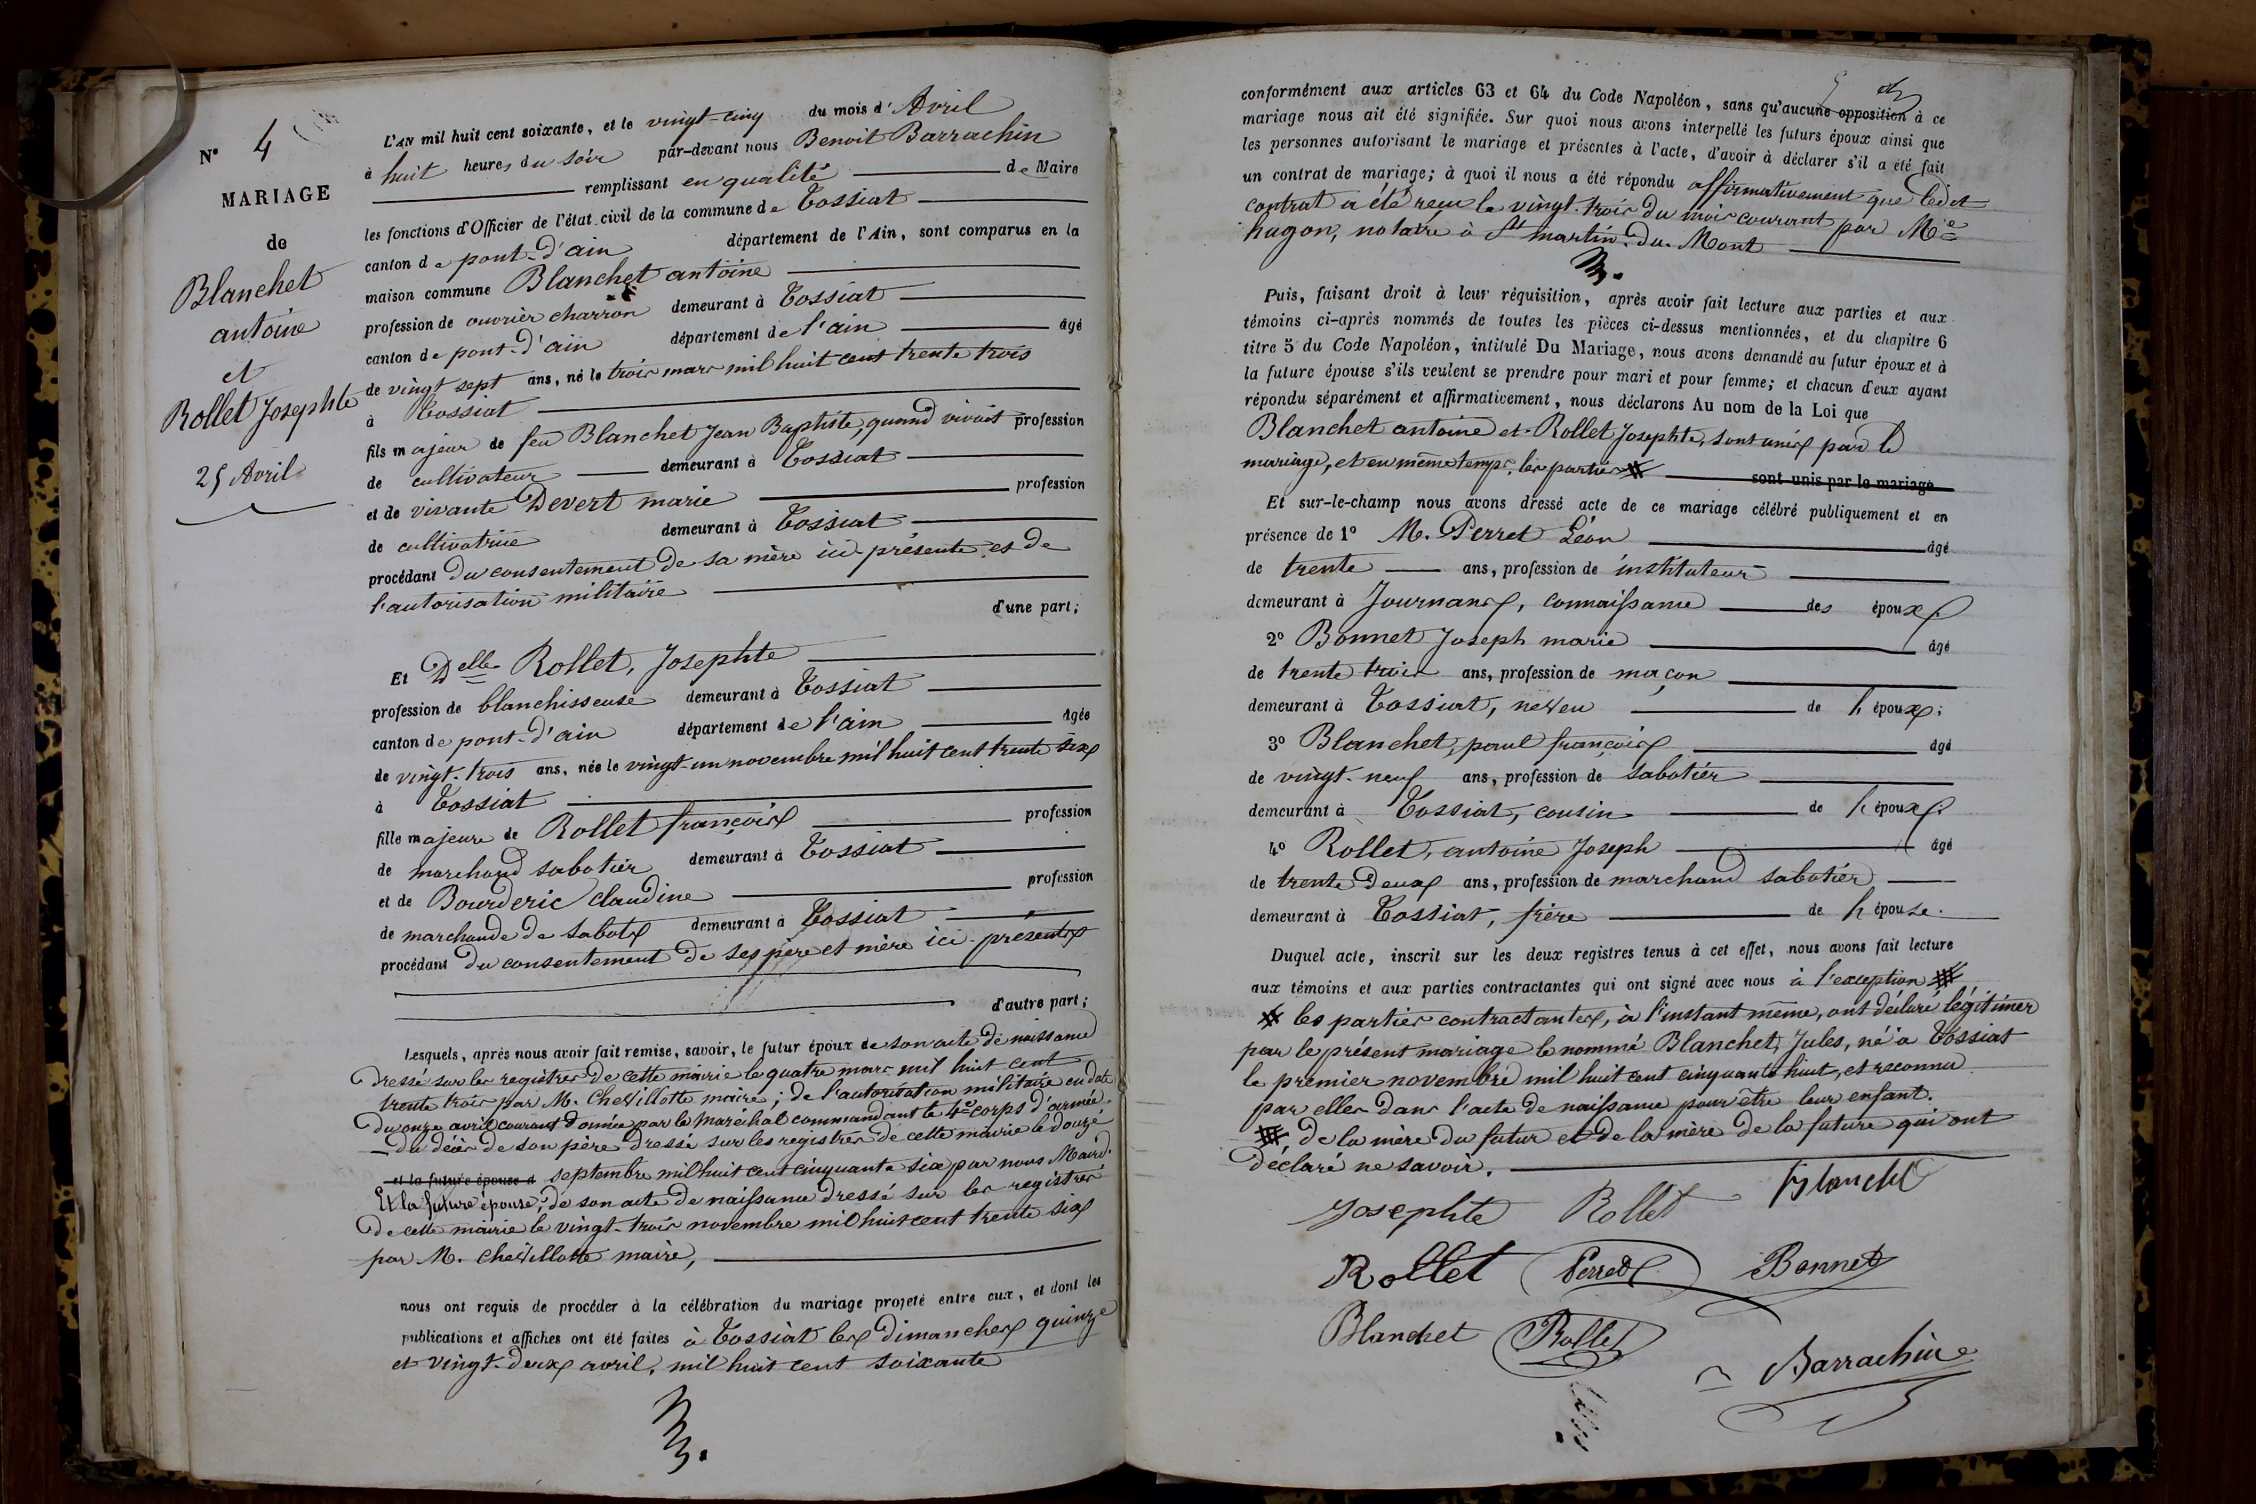 N° 4
MARIAGE
de
Blanchet
antoine
et
Rollet Josephte
25 Avril
L'AN mil huit cent soixante, et le vingt-cinq du mois d'Avril
à huit heures du soir par-devant nous Benoit Barrachin
remplissant en qualité de Maire
les fonctions d'Officier de l'état civil de la commune de Tossiat
canton de pont-d'ain département de l'Ain, sont comparus en la
maison commune Blanchet antoine
profession de ouvrier charron demeurant à Tossiat
canton de pont-d'ain département de l'ain âgé
de vingt sept ans, né le trois mars mil huit cent trente trois
à Tossiat
fils majeur de feu Blanchet Jean Baptiste, quand vivait profession
de cultivateur demeurant à Tossiat
et de vivante Devert marie profession
de cultivatrice demeurant à Tossiat
procédant du consentement de sa mère ici présente et de
l'autorisation militaire
d'une part;
Et Delle Rollet, Josephte
profession de blanchisseuse demeurant à Tossiat
canton de pont-d'ain département de l'ain âgée
de vingt-trois ans, née le vingt-un novembre mil huit cent trente six
à Tossiat
fille majeure de Rollet françois profession
de marchand sabotier demeurant à Tossiat
et de Bourderic claudine profession
de marchande de sabots demeurant à Tossiat
procédant du consentement de ses père et mère ici présents
d'autre part;
Lesquels, après nous avoir fait remise, savoir, le futur époux de son acte de naissance
dressé sur les registres de cette mairie le quatre mars mil huit cent
trente trois par M. Chevillotte maire; de l'autorisation militaire en date
du onze avril courant donnée par le Maréchal commandant le 4e corps d'armée
du décès de son père dressé sur les registres de cette mairie le douze
et la future épouse d septembre mil huit cent cinquante six par nous Maire.
Et la future épouse, de son acte de naissance dressé sur les registres
de cette mairie le vingt-trois novembre mil huit cent trente six
par M. Chevillotte maire,
nous ont requis de procéder à la célébration du mariage projeté entre eux, et dont les
publications et affiches ont été faites à Tossiat les dimanches quinze
et vingt-deux avril, mil huit cent soixante
conformément aux articles 63 et 64 du Code Napoléon, sans qu'aucune opposition à ce
mariage nous ait été signifiée. Sur quoi nous avons interpellé les futurs époux ainsi que
les personnes autorisant le mariage et présentes à l'acte, d'avoir à déclarer s'il a été fait
un contrat de mariage; à quoi il nous a été répondu affirmativement que ledit
contrat a été reçu le vingt-trois du mois courant par Me
hugon, notaire à St martin-du-Mont
Puis, faisant droit à leur réquisition, après avoir fait lecture aux parties et aux
témoins ci-après nommés de toutes les pièces ci-dessus mentionnées, et du chapitre 6
titre 5 du Code Napoléon, intitulé Du Mariage, nous avons demandé au futur époux et à
la future épouse s'ils veulent se prendre pour mari et pour femme; et chacun d'eux ayant
répondu séparément et affirmativement, nous déclarons Au nom de la Loi que
Blanchet antoine et Rollet Josephte, sont unis par le
mariage, et en même temps, les parties sont unis par le mariage
Et sur-le-champ nous avons dressé acte de ce mariage célébré publiquement et en
présence de 1° M. Perret Léon âgé
de trente ans, profession de instituteur
demeurant à Journans, connaissance des époux.
2° Bonnet Joseph marie âgé
de trente trois ans, profession de maçon
demeurant à Tossiat, neveu de l'époux;
3° Blanchet, paul françois âgé
de vingt-neuf ans, profession de sabotier
demeurant à Tossiat, cousin de l'époux.
4° Rollet, antoine Joseph âgé
de trente Deux ans, profession de marchand sabotier
demeurant à Tossiat, frère de l'épouse.
Duquel acte, inscrit sur les deux registres tenus à cet effet, nous avons fait lecture
aux témoins et aux parties contractantes qui ont signé avec nous à l'exception
les parties contractantes, à l'instant même, ont déclaré légitimer
par le présent mariage le nommé Blanchet, Jules, né à Tossiat
le premier novembre mil huit cent cinquante huit, et reconnu
par elles dans l'acte de naissance pour être leur enfant.
de la mère du futur et de la mère de la future qui ont
déclaré ne savoir.
Josephte Rollet Blanchet
Rollet Perret Bonnet
Blanchet Rollet
Barrachin